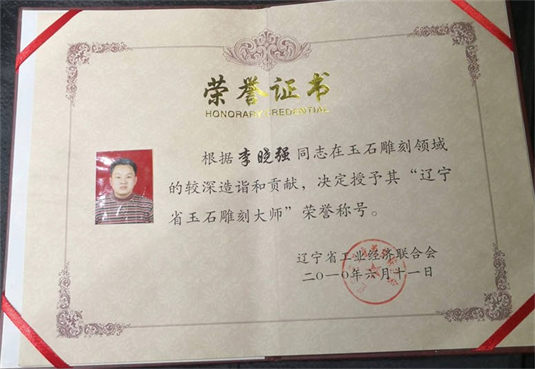 荣誉证书
HONORARY CREDENTIAL
根据李晓强同志在玉石雕刻领域
的较深造诣和贡献，决定授予其“辽宁
省玉石雕刻大师”荣誉称号。
辽宁省工业经济联合会
二〇一〇年六月十一日